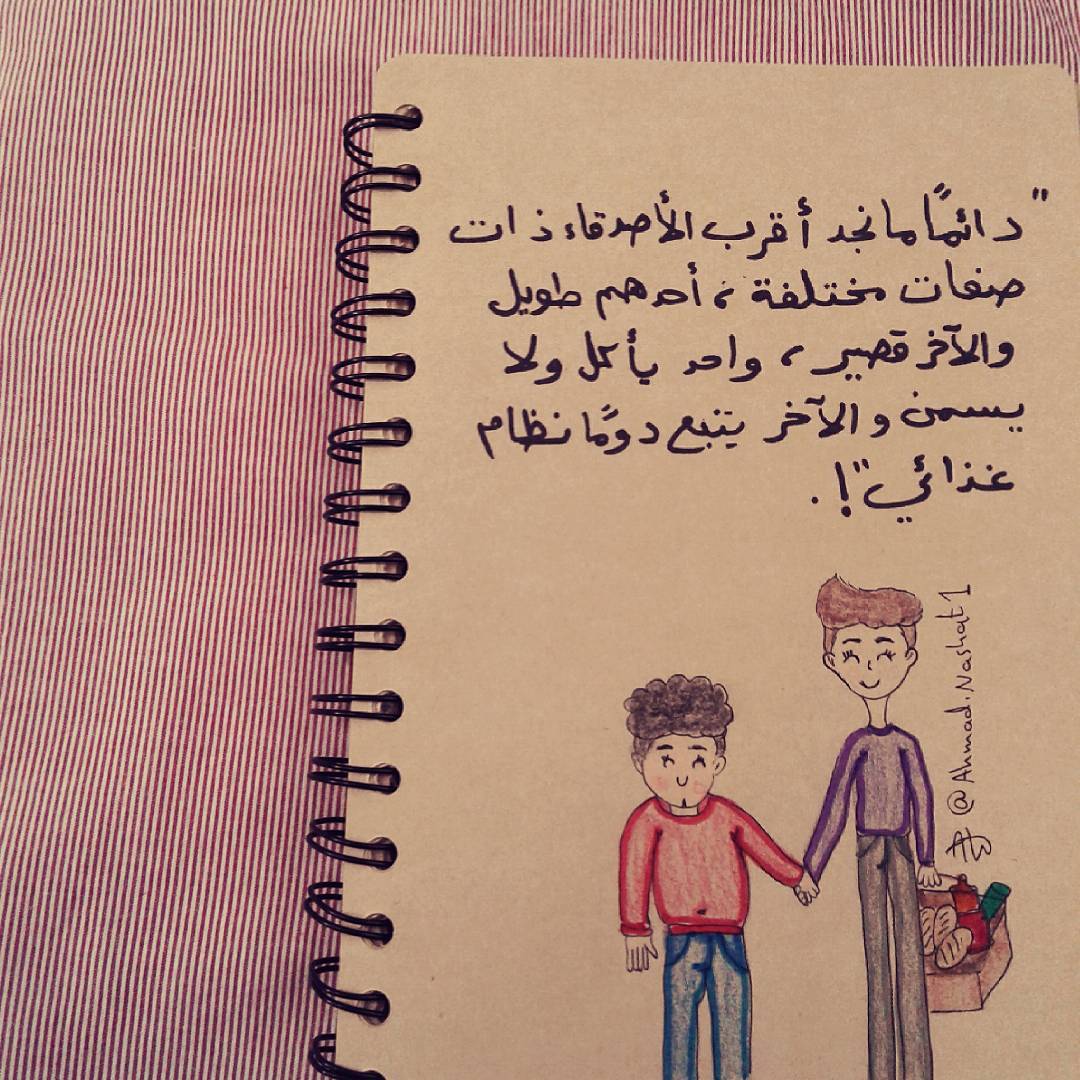 "دائمًا ما نجد أقرب الأصدقاء ذات
صفات مختلفة، أحدهم طويل
والآخر قصير، واحد يأكل ولا
يسمن والآخر يتبع دومًا نظام
غذائي"!.
@Ahmad.Nashat1